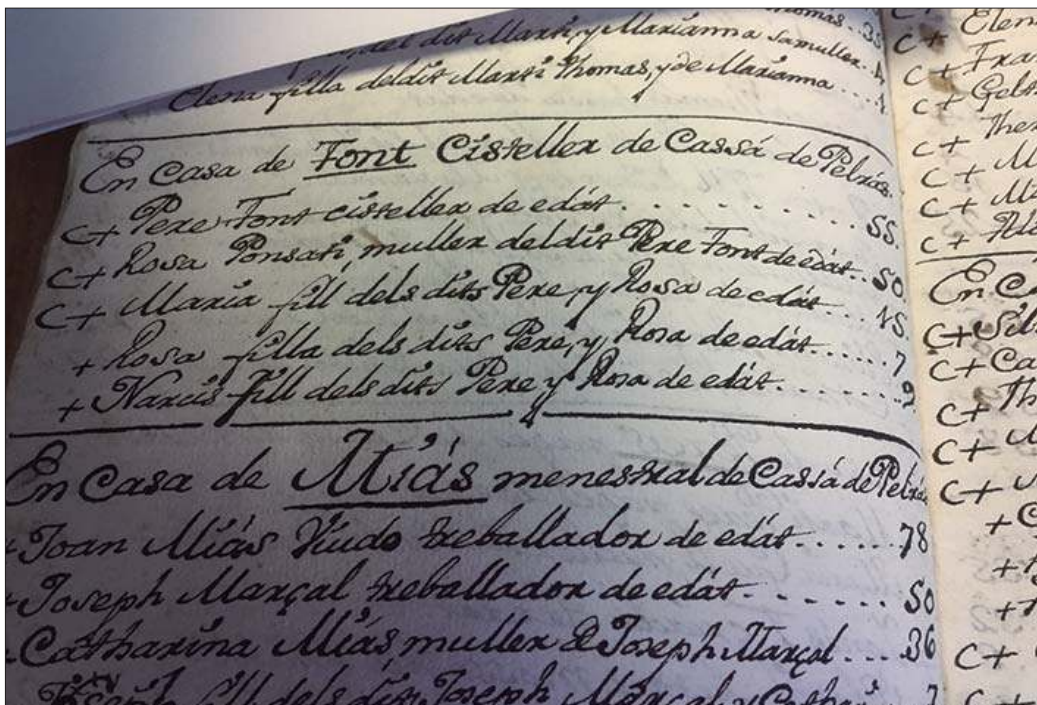 homas . 35
del dit Marti, y Marianna Samuller . 4
Elena filla deldit Marti Thomas, y de Marianna . . . 1
En Casa de Font Cisteller de Cassá de Pelrás.
C+ Pere Font cisteller de edát . . . . . . . . . . 55.
C+ Rosa Ponsati, muller deldit Pere Font de edát . . 50
C+ Maria fill dels dits Pere, y Rosa de edát . . . . 15.
+ Rosa filla dels dits Pere, y Rosa de edát . . . . . 7
+ Narcis fill dels dits Pere y Rosa de edát . . . . . . . 9
En Casa de Miás menestral de Cassá de Pelrás
+ Joan Miás Viudo treballador de edát . . . . . . 78
+ Joseph Marçal treballador de edát . . . . . . . . 50
Catharina Miás, muller de Joseph Marçal . . . 36
fill dels dits Joseph Marçal y
C+ Elen
C+ Fra
C+ Gelt
C+ The
C+ M
C+ Mi
C+
En C
C+ Sil
C+ Ca
C+ Th
C+ M
C+
+ C
+
+
C+
C+